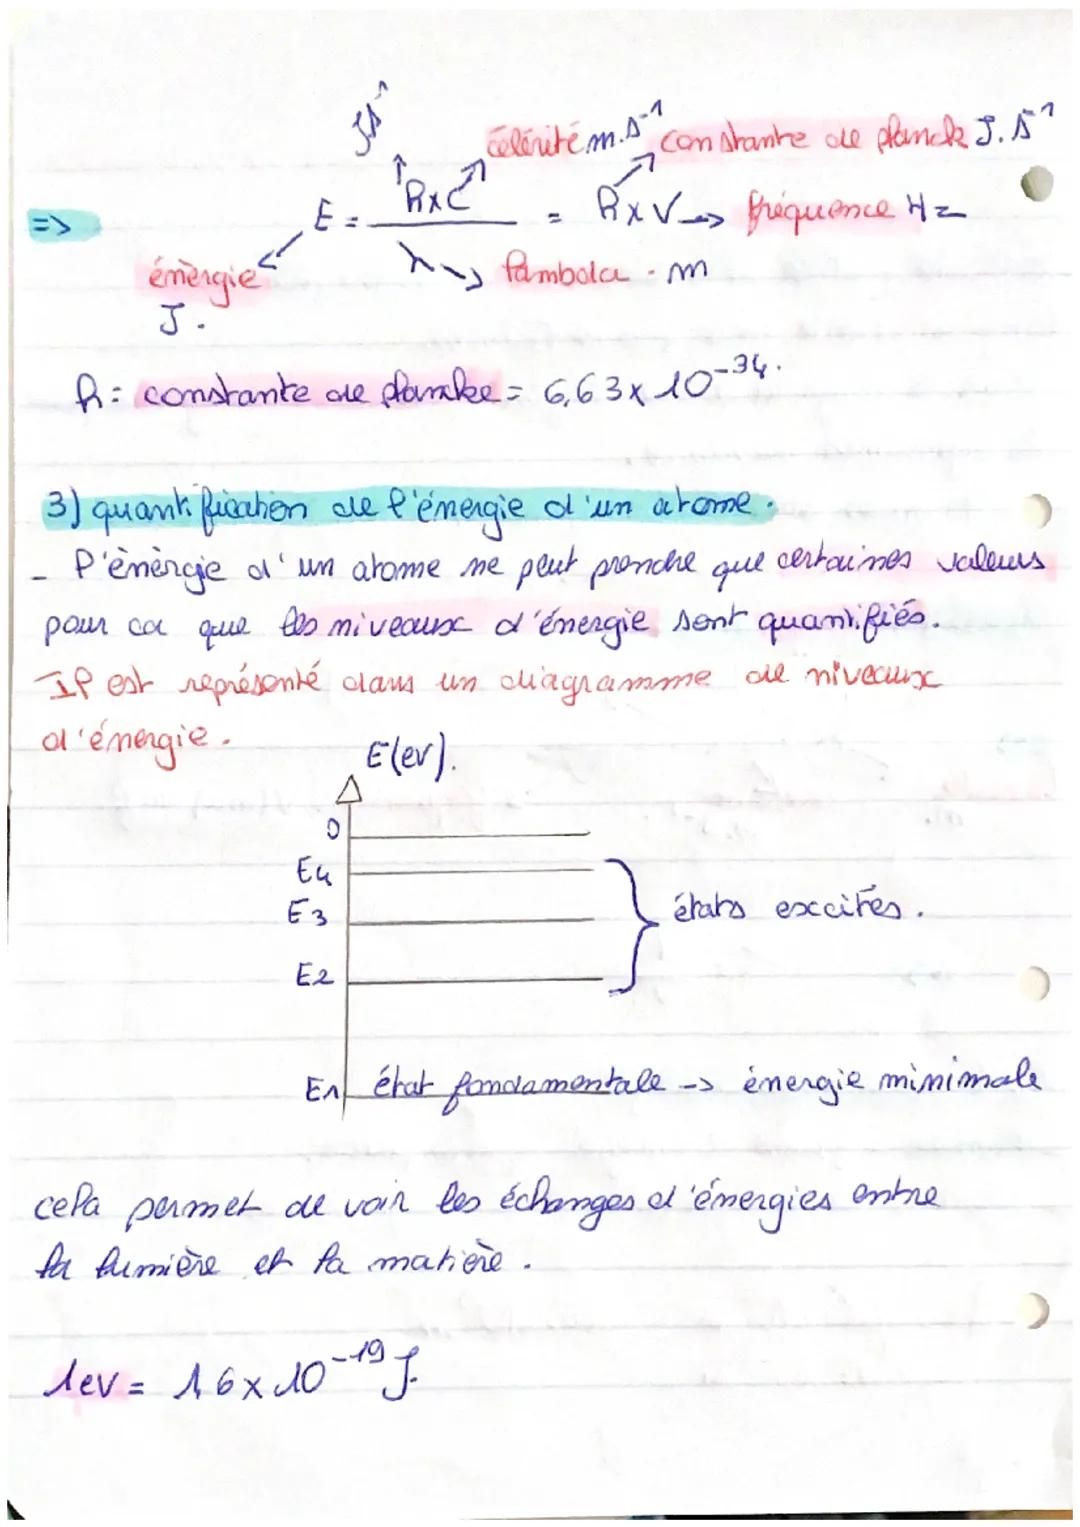 J.s⁻¹
célérité m.s⁻¹ constante de planck J.s⁻¹
=> E = h x c / λ = h x ν -> fréquence Hz
énergie lambda . m
J.
h = constante de plancke = 6,63 x 10⁻³⁴.
3) quantification de l'énergie d'un atome.
- l'énérgie d'un atome ne peut prendre que certaines valeurs
pour ca que les niveaux d'énergie sont quantifiés.
Il est représenté dans un diagramme de niveaux
d'énergie.
E(ev).
0
E4
E3 états excités.
E2
E1 état fondamentale -> énergie minimale
cela permet de voir les échanges d'énergies entre
la lumière et la matière.
1ev = 1,6 x 10⁻¹⁹ J.